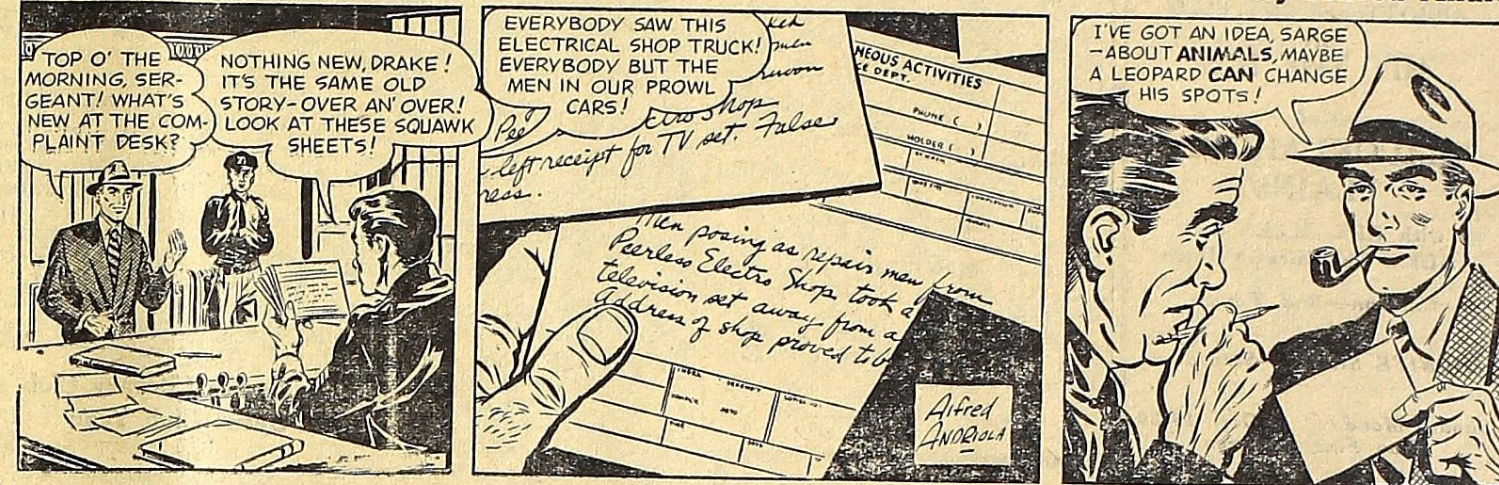 TOP O' THE
MORNING, SER-
GEANT! WHAT'S
NEW AT THE COM-
PLAINT DESK?
NOTHING NEW, DRAKE!
IT'S THE SAME OLD
STORY-OVER AN' OVER!
LOOK AT THESE SQUAWK
SHEETS!
EVERYBODY SAW THIS
ELECTRICAL SHOP TRUCK!
EVERYBODY BUT THE
MEN IN OUR PROWL
CARS!
Pee
ctro Shop
left receipt for TV set. False
ress.
NEOUS ACTIVITIES
CE DEPT.
PHONE ( )
HOLDER ( )
Men posing as repair men from
Peerless Electro Shop took a
television set away from a
Address of shop proved to b
Alfred
ANDRIOLA
I'VE GOT AN IDEA, SARGE
-ABOUT ANIMALS, MAYBE
A LEOPARD CAN CHANGE
HIS SPOTS!